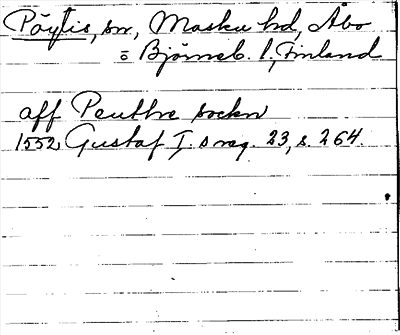 Pöytis, sn, Masku hd, Åbo
o Björneb. l., Finland
aff Peuthre sockn
1552 Gustaf I:s reg. 23, s. 264.